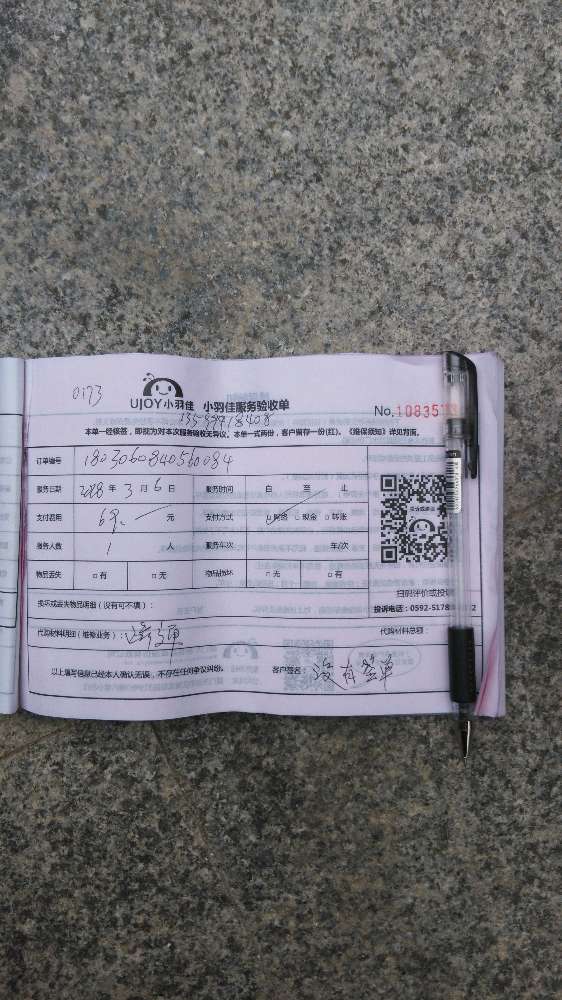 0173
UJOY小羽佳 小羽佳服务验收单
No.10835
本单一经核签,即视为对本次服务验收无异议。本单一式两份,客户留存一份(红)。《维保须知》详见背面。
订单编号 1803060840560084
服务日期 2018 年 3 月 6 日 服务时间 自 至 止
支付费用 69. 元 支付方式 □网络 □现金 □转账
服务人数 1 人 服务车次 车/次
物品丢失 □有 □无 物品损坏 □无 □有
扫码评价或投诉
损坏或丢失物品明细(没有可不填):
投诉电话:0592-5178
代购材料明细(维修业务):
代购材料总额:
以上填写信息已经本人确认无误,不存在任何争议纠纷。
客户签名: 没有签单